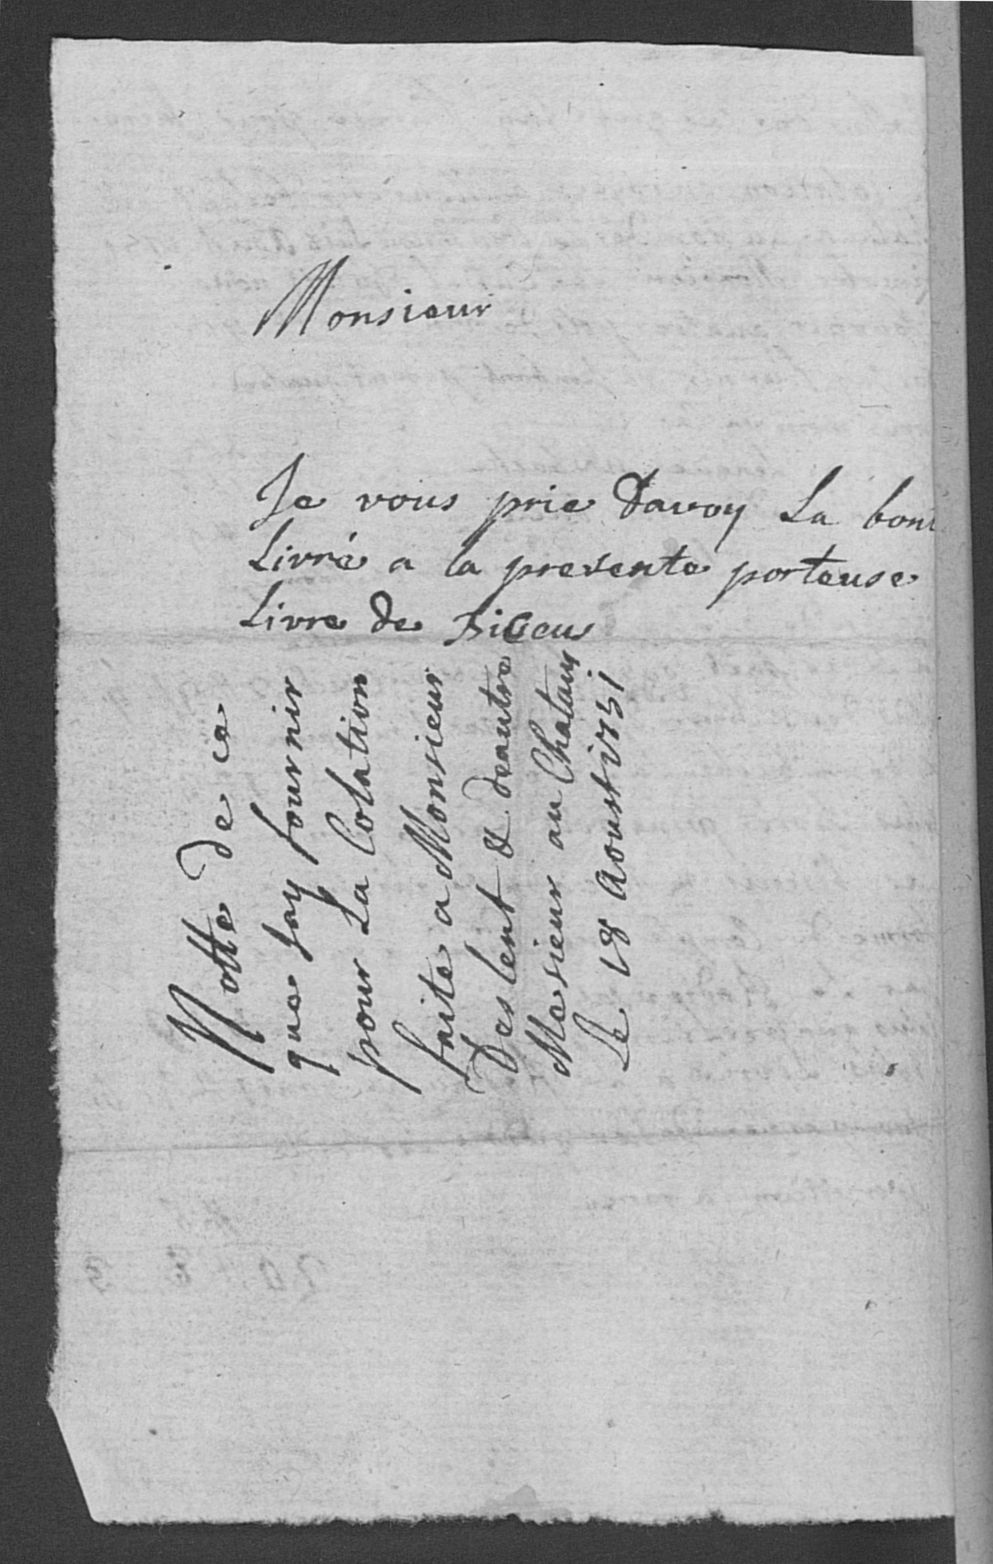 Monsieur
Je vous prie Davoy La bont
Livré a la presente porteuse
Livre de
Notte de ce
que Jay fournir
pour La Colation
faite a Monsieur
Deslent & deautre
Mesieur au Chataux
Le 18 Aoust 1751